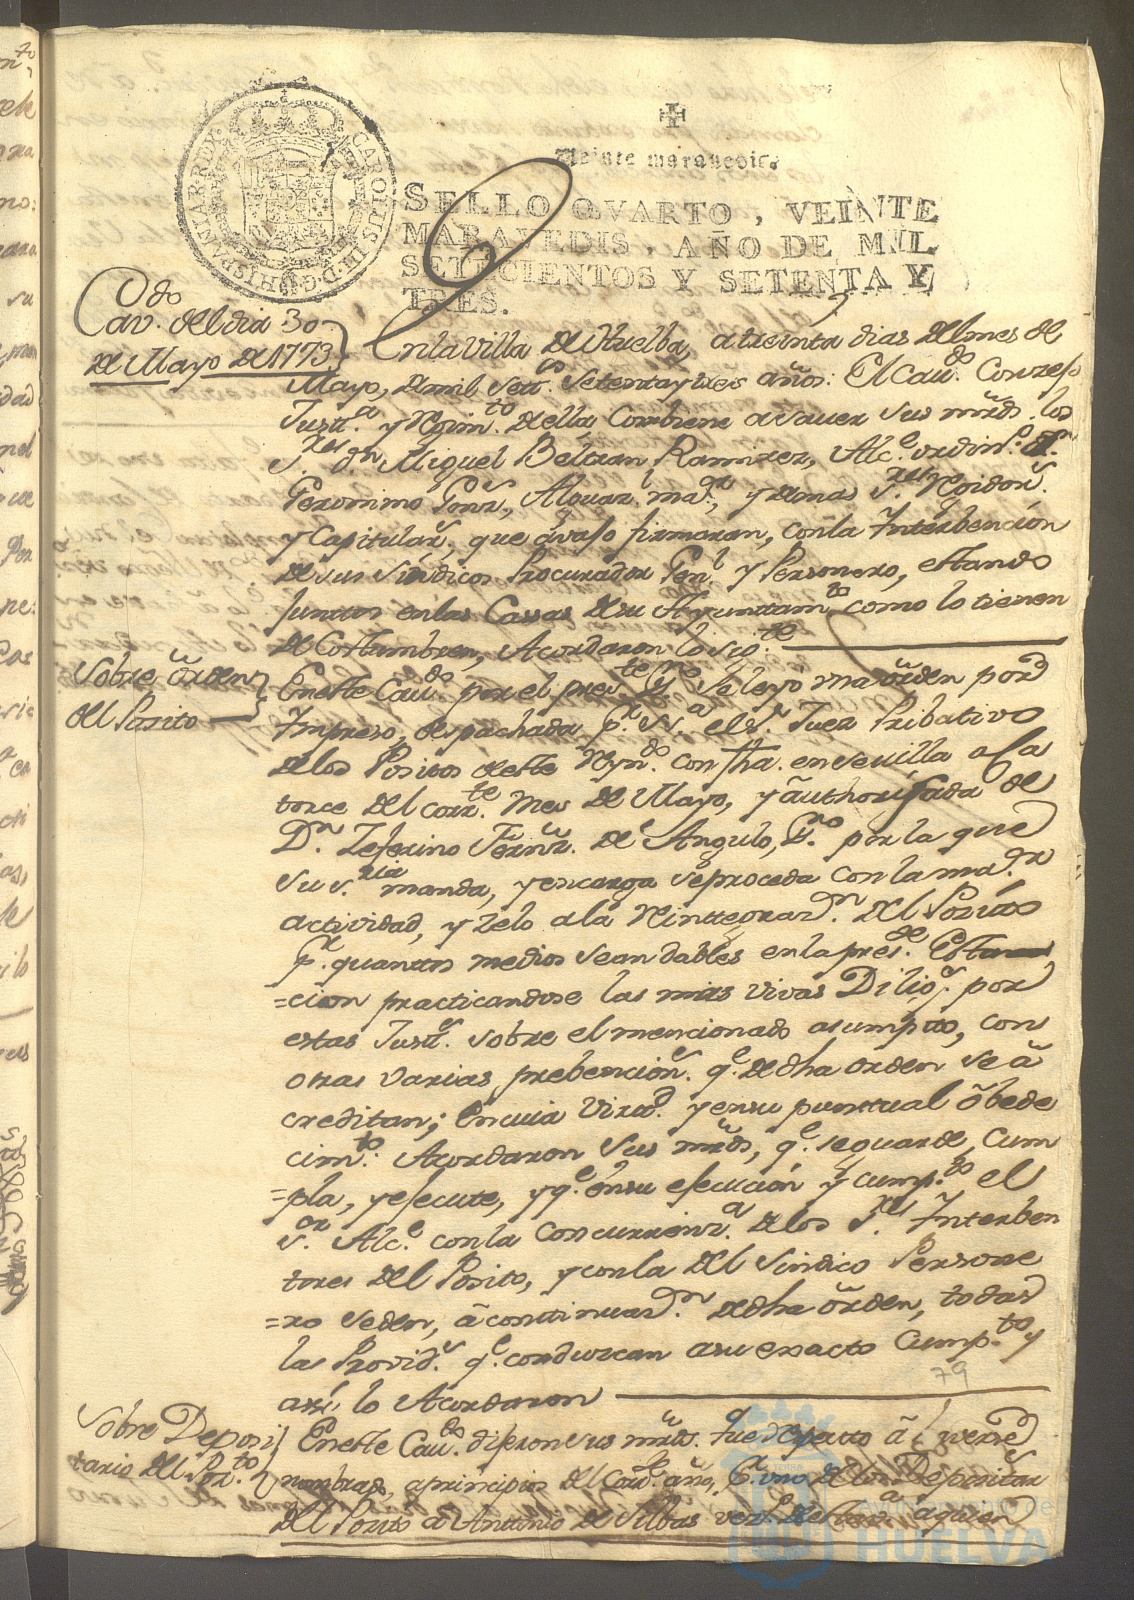 CAROLUS III D G HISPANIAR REX
Veinte maravedis
SELLO QVARTO, VEINTE
MARAVEDIS, AÑO DE MIL
SETECIENTOS Y SETENTA Y
TRES.
Cav.do del dia 30
de Mayo de 1773
En la Villa de Huelba, a treinta dias del mes de
Mayo, de mil Sett.s Setenta y tres años: El Cau.do Conzejo
Just.a y Regim.to de ella Combiene a Sauer sus mrds. los
S.res Dn Miguel Beltran Ramirez, Alc.e ordin.o Dn.
Geronimo Gonz, Alguaz.l ma.r, y demas S.res Regidor.s
y Capitular.s, que avajo firmaran, con la Interbencion
de sus Sindicos Procurador Gen.l y Personero, estando
Juntos en las Cassas de su Ayuntam.to como lo tienen
de Costumbren, Acordaron lo sig.te
Sobre orden
del Posito
En este Cau.do por el pres.te Es.no se leyo una orden por
Impreso, despachada p.r S.Sa el S.r Juez Pribativo
de los Positos deste Reyn.do con fha. en Sevilla a Ca
torce del corr.te Mes de Mayo, y authorisada de
D.n Zeferino Fernz. de Angulo, Es.no por la que
su S.ria manda, y encarga se proceda con la ma.or
actividad, y Zelo a la Reinttegraz.n del Posito
p.r quantos medios sean dables en la pres.te Esta
=cion practicandose las mas vivas Dilig.s por
estas Just.s sobre el mencionado asumpto, con
otras varias prebencion.s q.e de dha orden se a
creditan; En cuia Virtd. y en su puntual obede
cim.to Acordaron sus mrds, q.e se guarde, Cum
=pla, y esecute, y q.e en su esecucion y cump.to el
S.or Alc.e con la Concurrenz.a de los S.res Interben
tores del Posito, y con la del Sindico Persone
=ro se den, a conttinuaz.n de dha orden, todas
las Provid.s q.e conduzcan a su exacto Cump.to y
assi lo Acordaron
79
Sobre Deposi
tario del Pos.to
En este Cau.do dijeron sus mrds. que respecto a
nombrado, a principios del Corr.te año, p.r uno de los Depositar
del Posito a Anttonio de Silbas vez.o desta V.a a quien
Ayuntamiento de
HUELVA